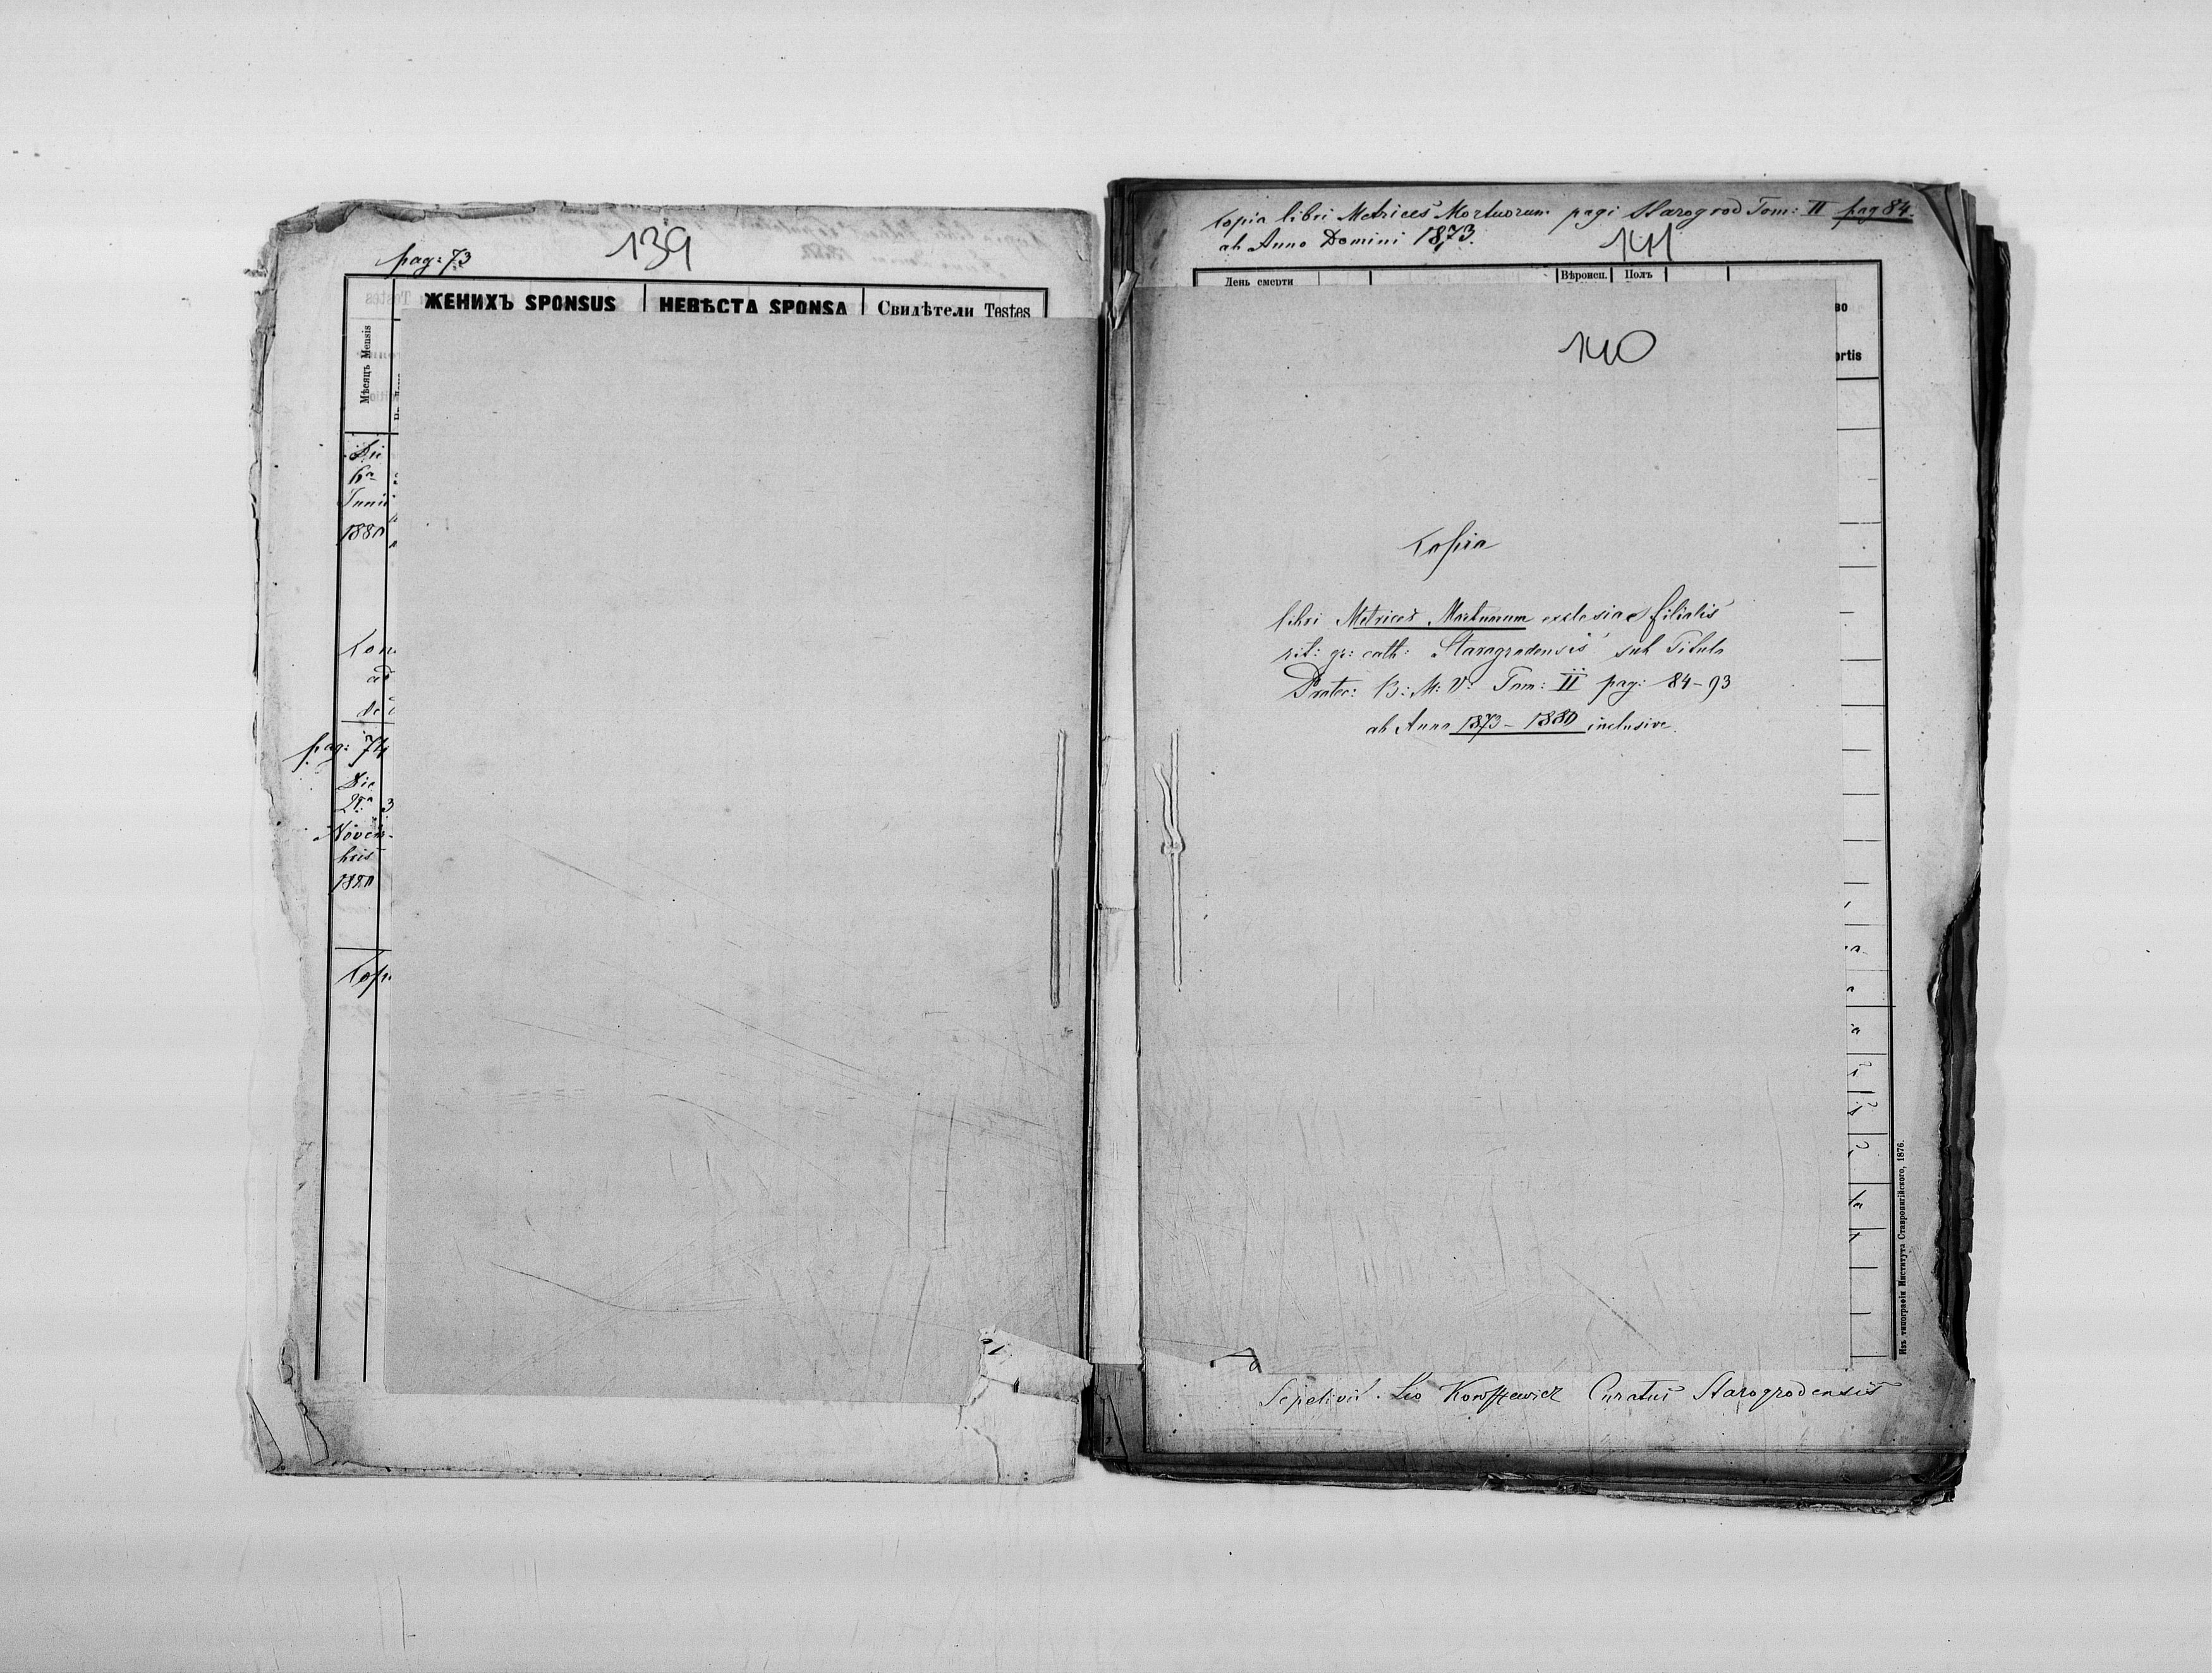 pag: 73
139
ЖЕНИХЪ SPONSUS
НЕВѢСТА SPONSA
Свидѣтели Testes
Мѣсяцъ Mensis
Die
6ª
Junii
1880
Kon
ad
de
pag: 74
Die
3
Novem
bris
1880
Kopi
Kopia libri Metrices Mortuorum pagi Starogrod Tom: II pag 84.
ab Anno Domini 1873.
141
День смерти
Вѣроисп.
Полъ
во
ortis
140
Kopia
libri Metrices Mortuorum ecclesiae filialis
rit: gr: cath: Starogrodensis sub Titulo
Protec: B: M: V: Tom: II pag: 84-93
ab Anno 1873 - 1880 inclusive.
Изъ типографіи Института Ставропигійского, 1876.
Sepelivit Leo Curatus Starogrodensis